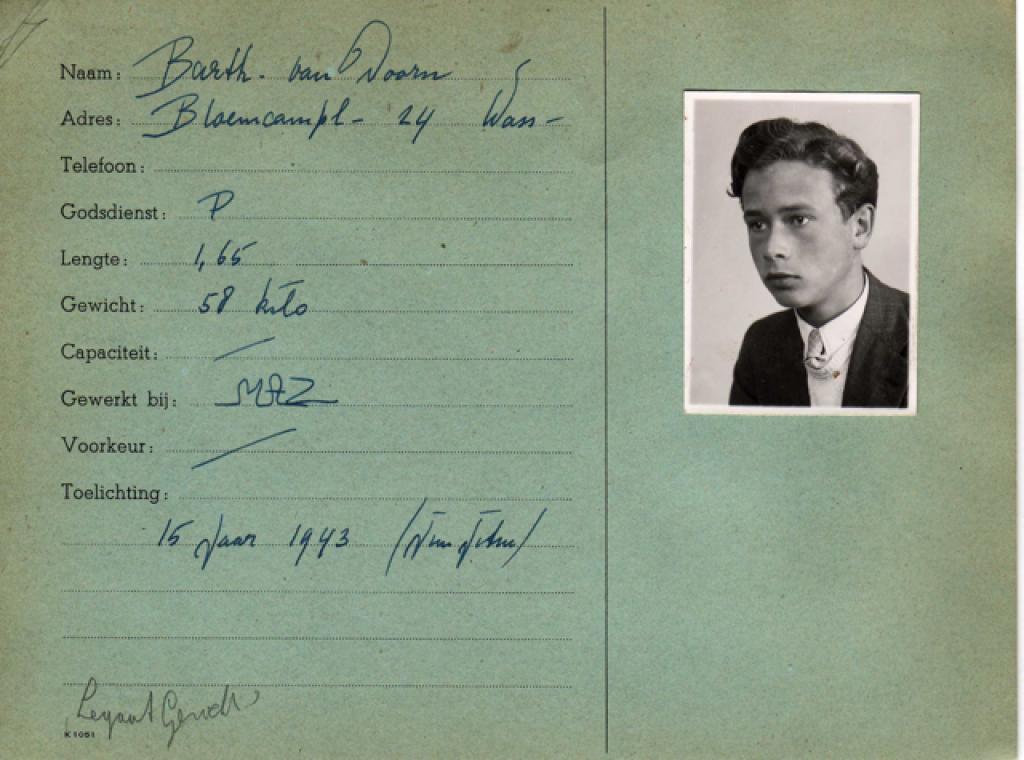 Naam: Barth. van Doorn
Adres: Bloemcampl- 24 Wass-
Telefoon:
Godsdienst: P
Lengte: 1,65
Gewicht: 58 kilo
Capaciteit: /
Gewerkt bij: MAZ
Voorkeur: /
Toelichting:
15 Jaar 1943
K 1051